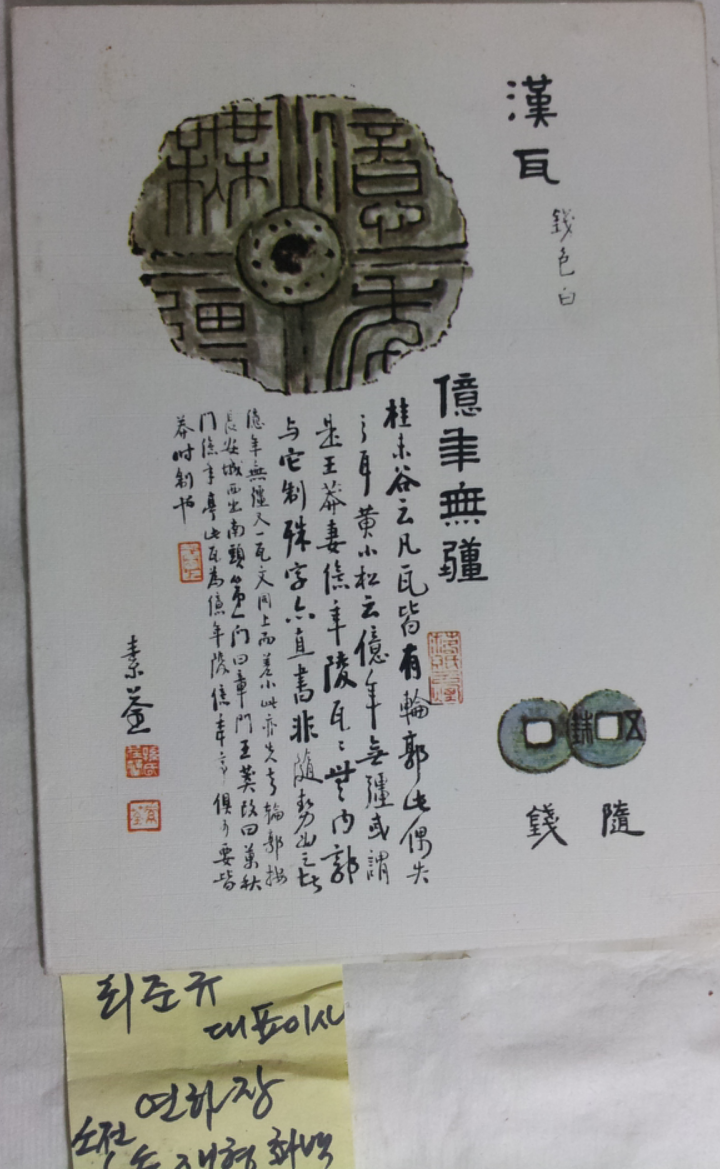 漢瓦
錢色白
億年無疆
桂未谷云凡瓦皆有輪郭此偶失
之耳黄小松云億年無疆或謂
是王莽妻億年陵瓦
与它制殊字亦直書非隨勢
億年無疆又一瓦文同上而差小此亦失其輪郭按
長安城西出南頭第一門曰章門王莽改曰萬秋
門億年亭此瓦為億年陵億年亭俱可要皆
莽時制也
素荃
五銖
隨錢
최준규
대표이사
연하장
소전
손재형 화백